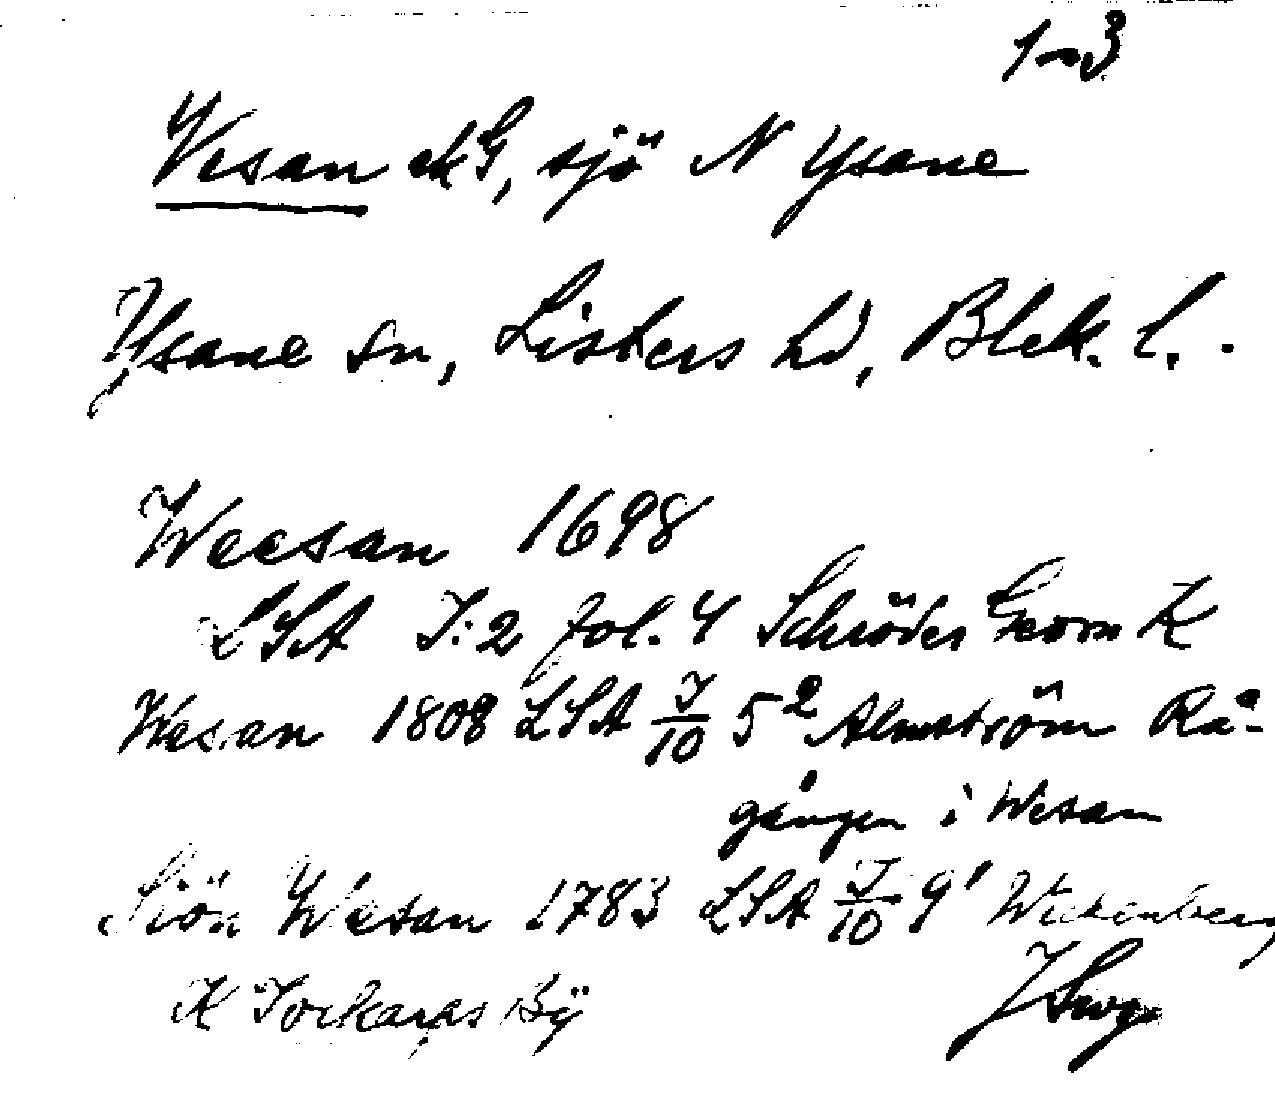 1-3
Vesan ekG, sjö N Ysane
Ysane sn, Listers hd, Blek. l.
Weesan 1698
LSA I:2 fol. 4 Schröder Geom K
Wesan 1808 LSA I/10 5² Almström Rå-
gången i Wesan
Siön Wesan 1783 LSA I/10 9¹ Wickenberg
K Torkarps Bÿ